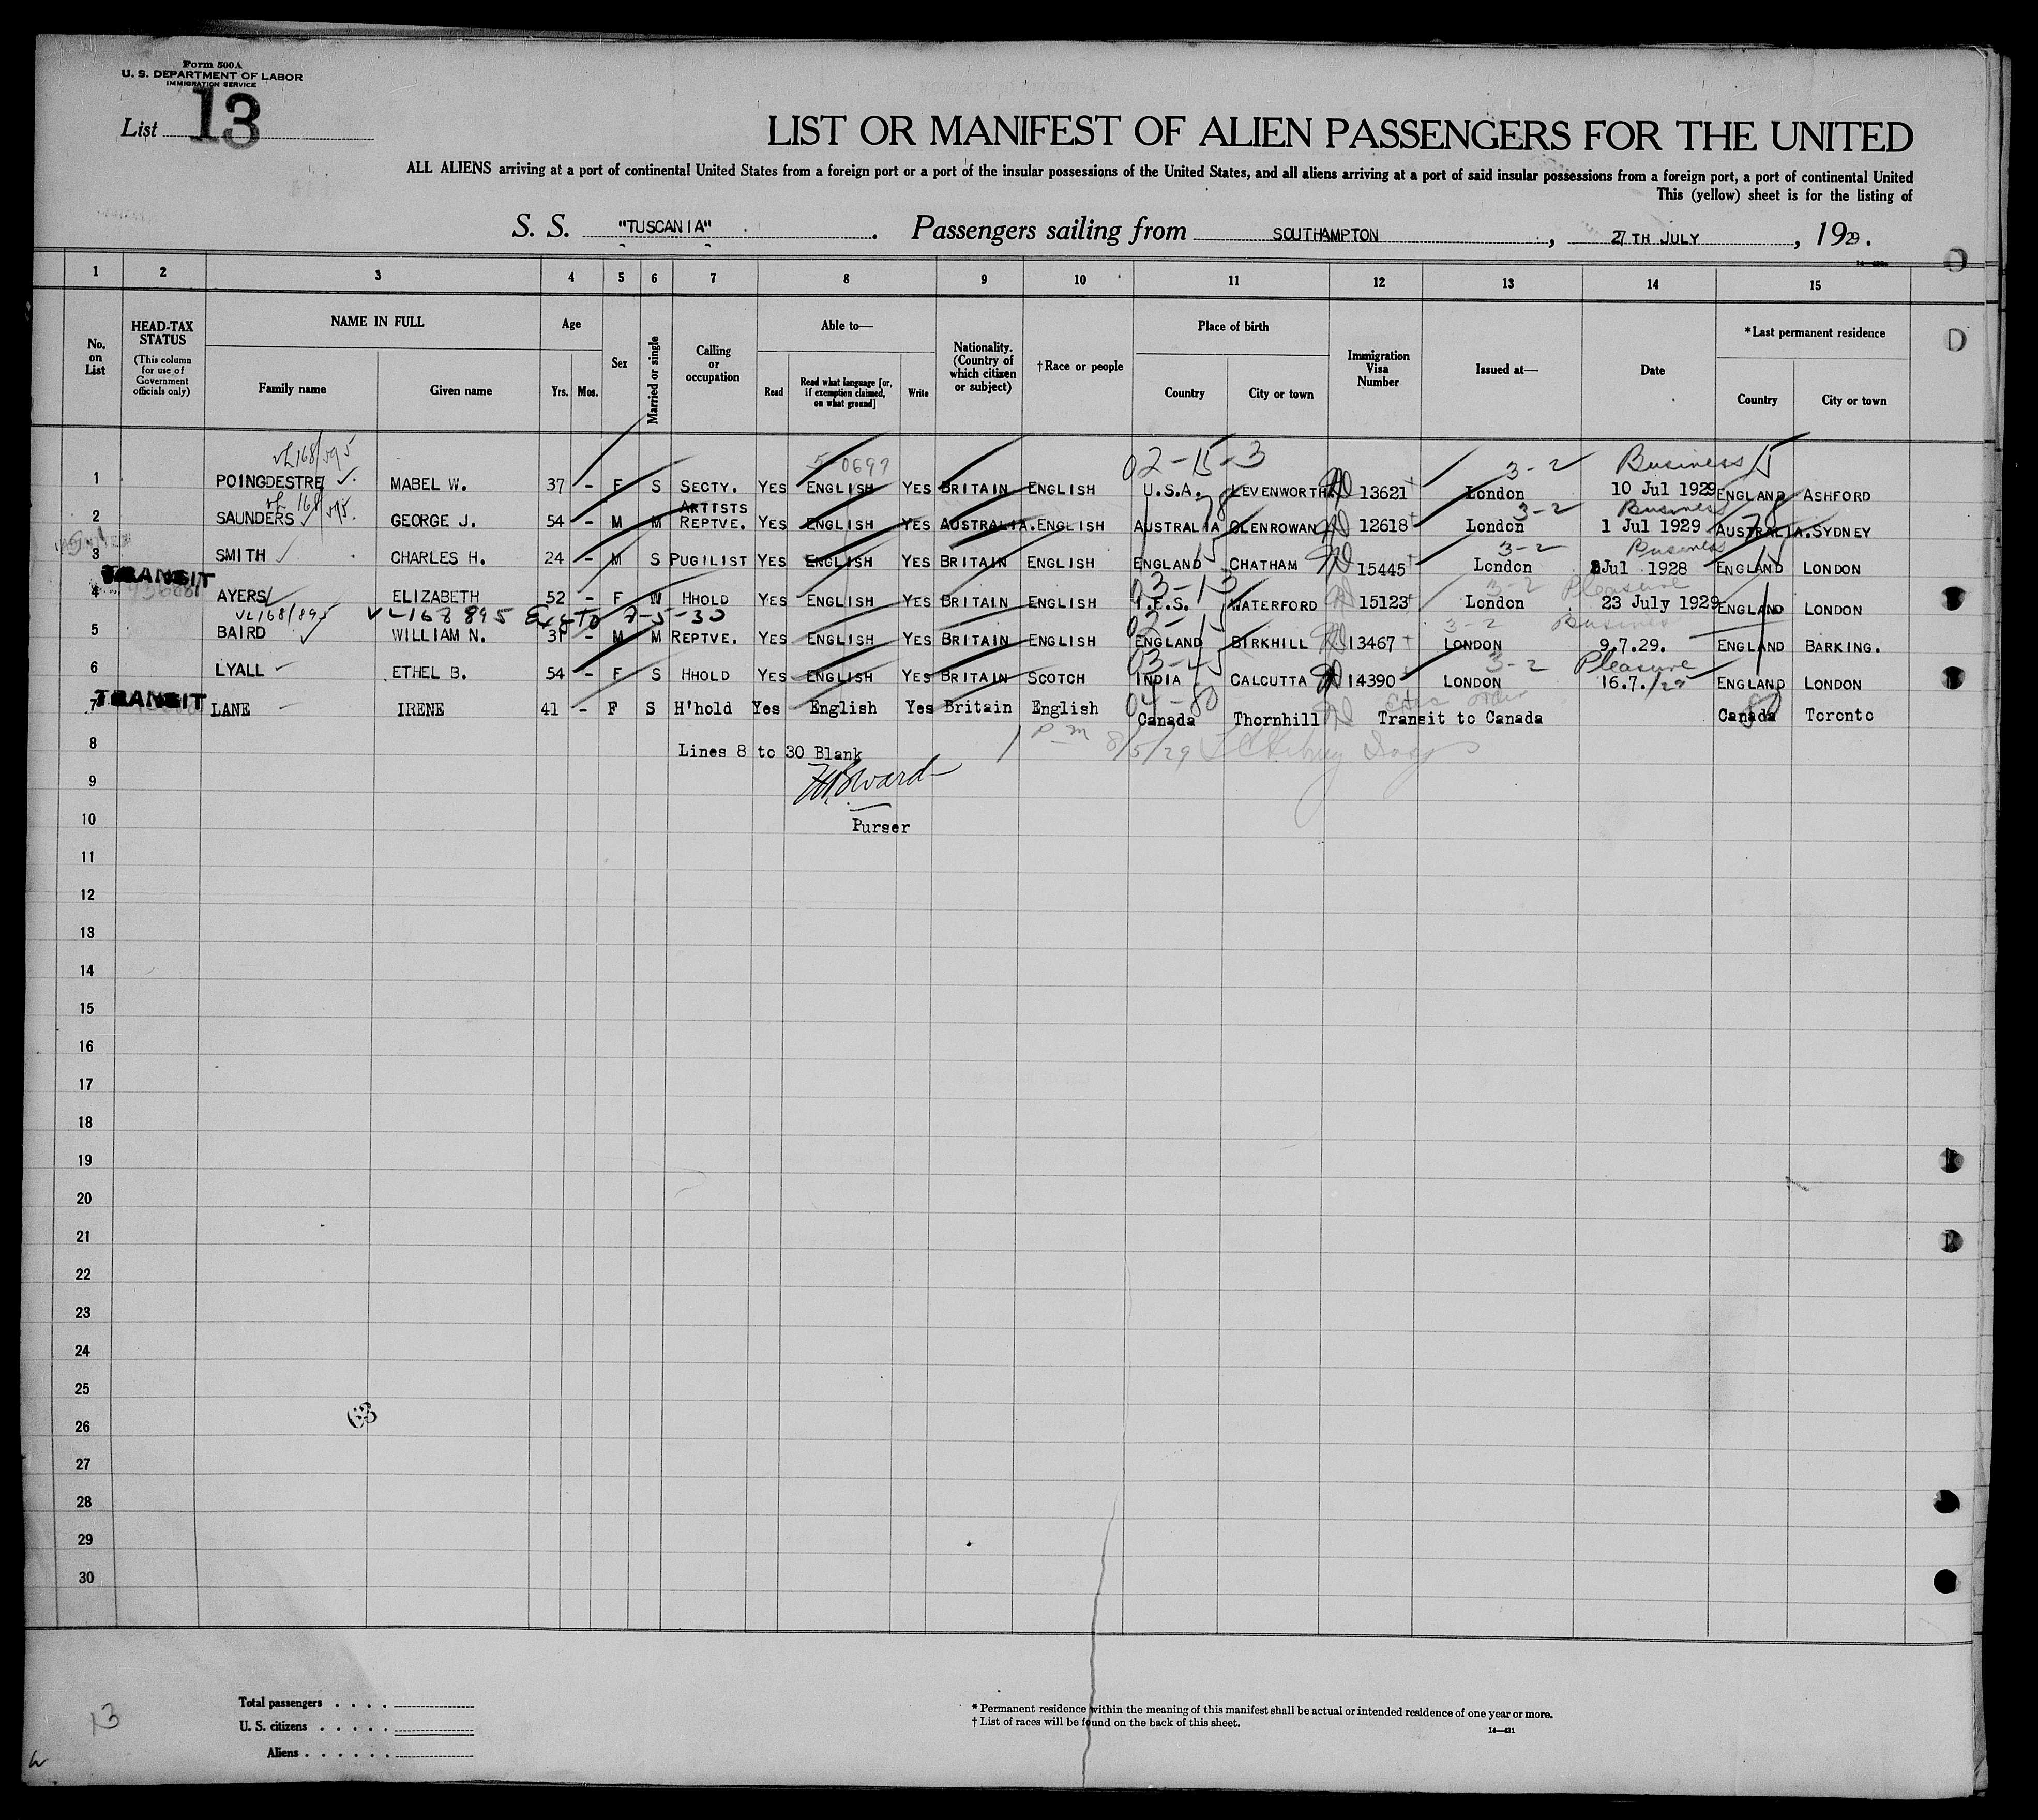 Form 500A
U. S. DEPARTMENT OF LABOR
IMMIGRATION SERVICE
List 13
LIST OR MANIFEST OF ALIEN PASSENGERS FOR THE UNITED
ALL ALIENS arriving at a port of continental United States from a foreign port or a port of the insular possessions of the United States, and all aliens arriving at a port of said insular possessions from a foreign port, a port of continental United
This (yellow) sheet is for the listing of
S. S. "TUSCANIA". Passengers sailing from SOUTHAMPTON, 27TH JULY, 1929.
1 2 3 4 5 6 7 8 9 10 11 12 13 14 15
No. on List
HEAD-TAX STATUS (This column for use of Government officials only)
NAME IN FULL
Family name Given name
Age
Yrs. Mos.
Sex
Married or single
Calling or occupation
Able to—
Read Read what language [or, if exemption claimed, on what ground] Write
Nationality. (Country of which citizen or subject)
†Race or people
Place of birth
Country City or town
Immigration Visa Number
Issued at—
Date
*Last permanent residence
Country City or town
VL168/895 5-0697 02-15-3 3-2 Business 15
1 POINGDESTRE MABEL W. 37 - F S SECTY. YES ENGLISH YES BRITAIN ENGLISH U.S.A. LEVENWORTH 13621 London 10 Jul 1929 ENGLAND ASHFORD
VL 168/895. 78 3-2 Business
2 SAUNDERS GEORGE J. 54 - M M ARTISTS REPTVE. YES ENGLISH YES AUSTRALIA. ENGLISH AUSTRALIA GLENROWAN 12618 London 1 Jul 1929 AUSTRALIA. SYDNEY
15 3-2 Business 15
3 SMITH CHARLES H. 24 - M S PUGILIST YES ENGLISH YES BRITAIN ENGLISH ENGLAND CHATHAM 15445 London 2 Jul 1928 ENGLAND LONDON
TRANSIT 03-13 3-2 Pleasure
4 AYERS ELIZABETH 52 - F W HHOLD YES ENGLISH YES BRITAIN ENGLISH I.F.S. WATERFORD 15123 London 23 July 1929 ENGLAND LONDON
VL168/895 VL168895 Ext to 2-5-30 02-15 3-2 Business
5 BAIRD WILLIAM N. 31 - M M REPTVE. YES ENGLISH YES BRITAIN ENGLISH ENGLAND BIRKHILL 13467 LONDON 9.7.29. ENGLAND BARKING.
03-45 3-2 Pleasure
6 LYALL ETHEL B. 54 - F S HHOLD YES ENGLISH YES BRITAIN SCOTCH INDIA CALCUTTA 14390 LONDON 16.7./29 ENGLAND LONDON
TRANSIT 04-80 80
7 LANE IRENE 41 - F S H'hold Yes English Yes Britain English Canada Thornhill Transit to Canada Canada Toronto
8 Lines 8 to 30 Blank 8/5/29
9
10 Purser
11
12
13
14
15
16
17
18
19
20
21
22
23
24
25
26
27
28
29
30
63
13
Total passengers
U. S. citizens
Aliens
* Permanent residence within the meaning of this manifest shall be actual or intended residence of one year or more.
† List of races will be found on the back of this sheet.
14—431